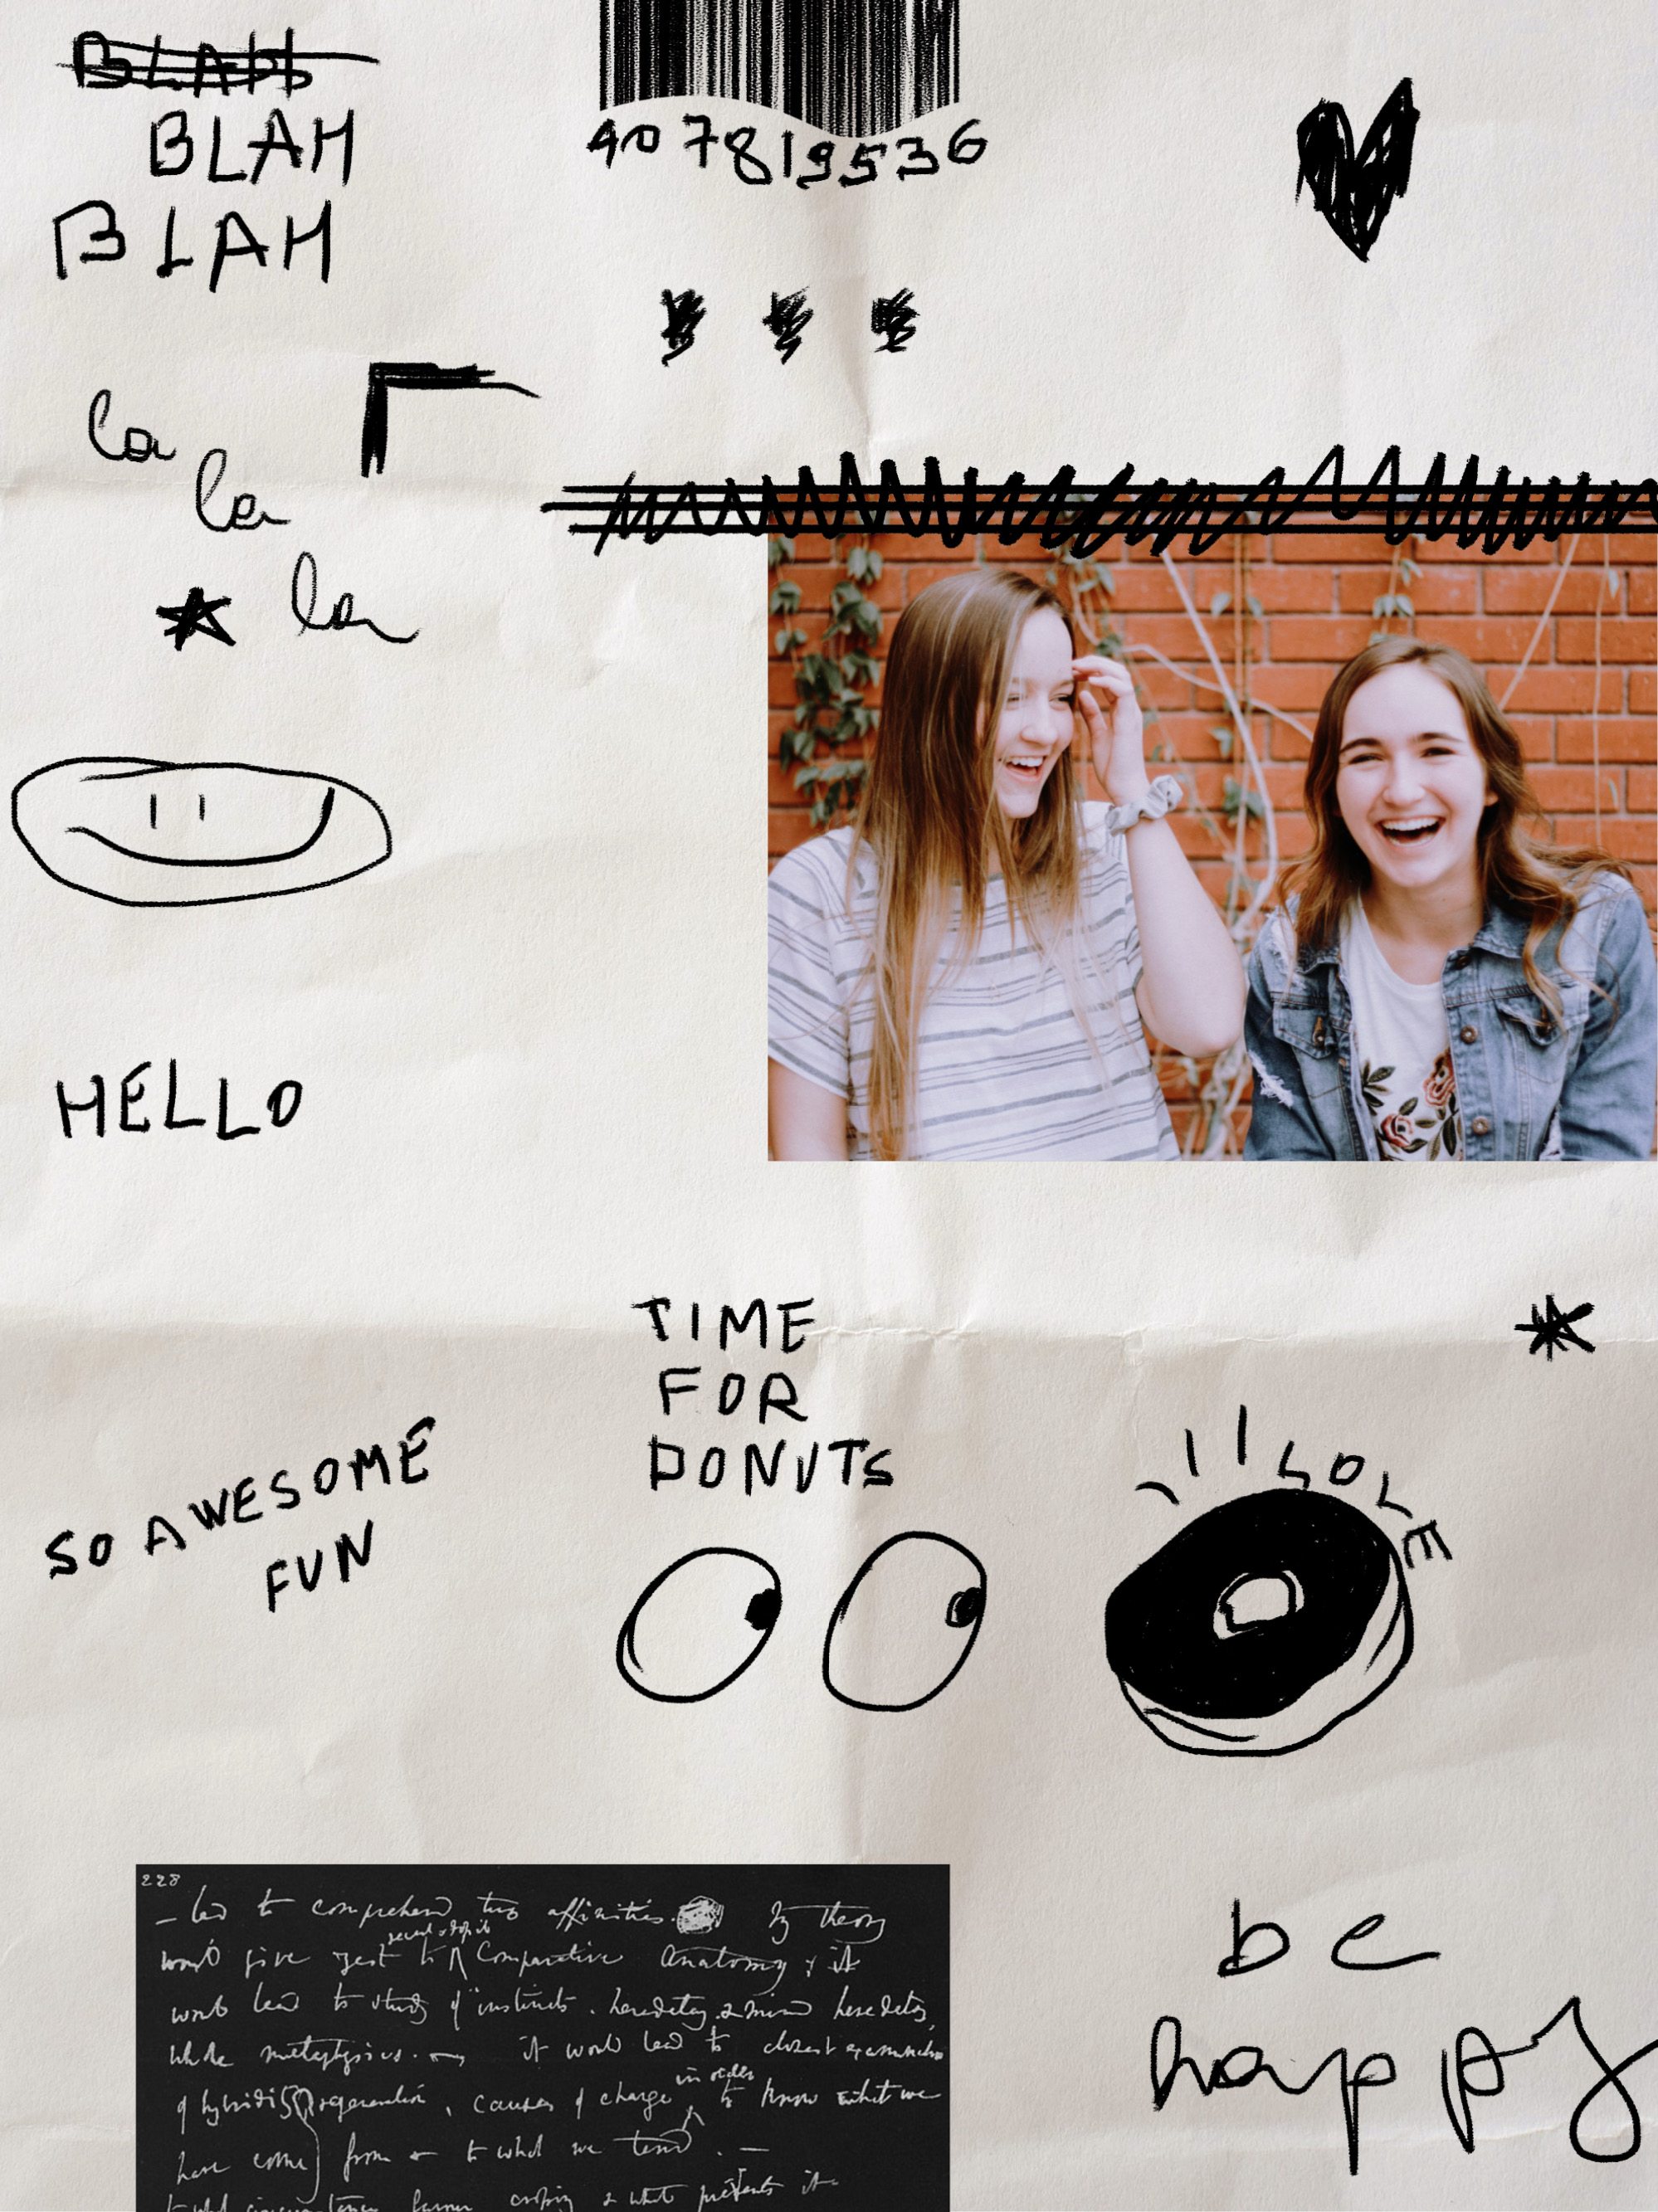 BLAH
BLAH
BLAH
407819536
la
la
la
HELLO
TIME
FOR
DONUTS
SO AWESOME
FUN
LOVE
228
– led to comprehend two affinities. My theory
would give zest to recent & fossil Comparative Anatomy, & it
would lead to study of instincts, heredetary & mind heredetary,
whole metaphysics. – it would lead to closest examination
of hybridity regeneration, causes of change in order to know what we
have come from & to what we tend. –
to what circumstances favour crossing & what prevents it
be
happy